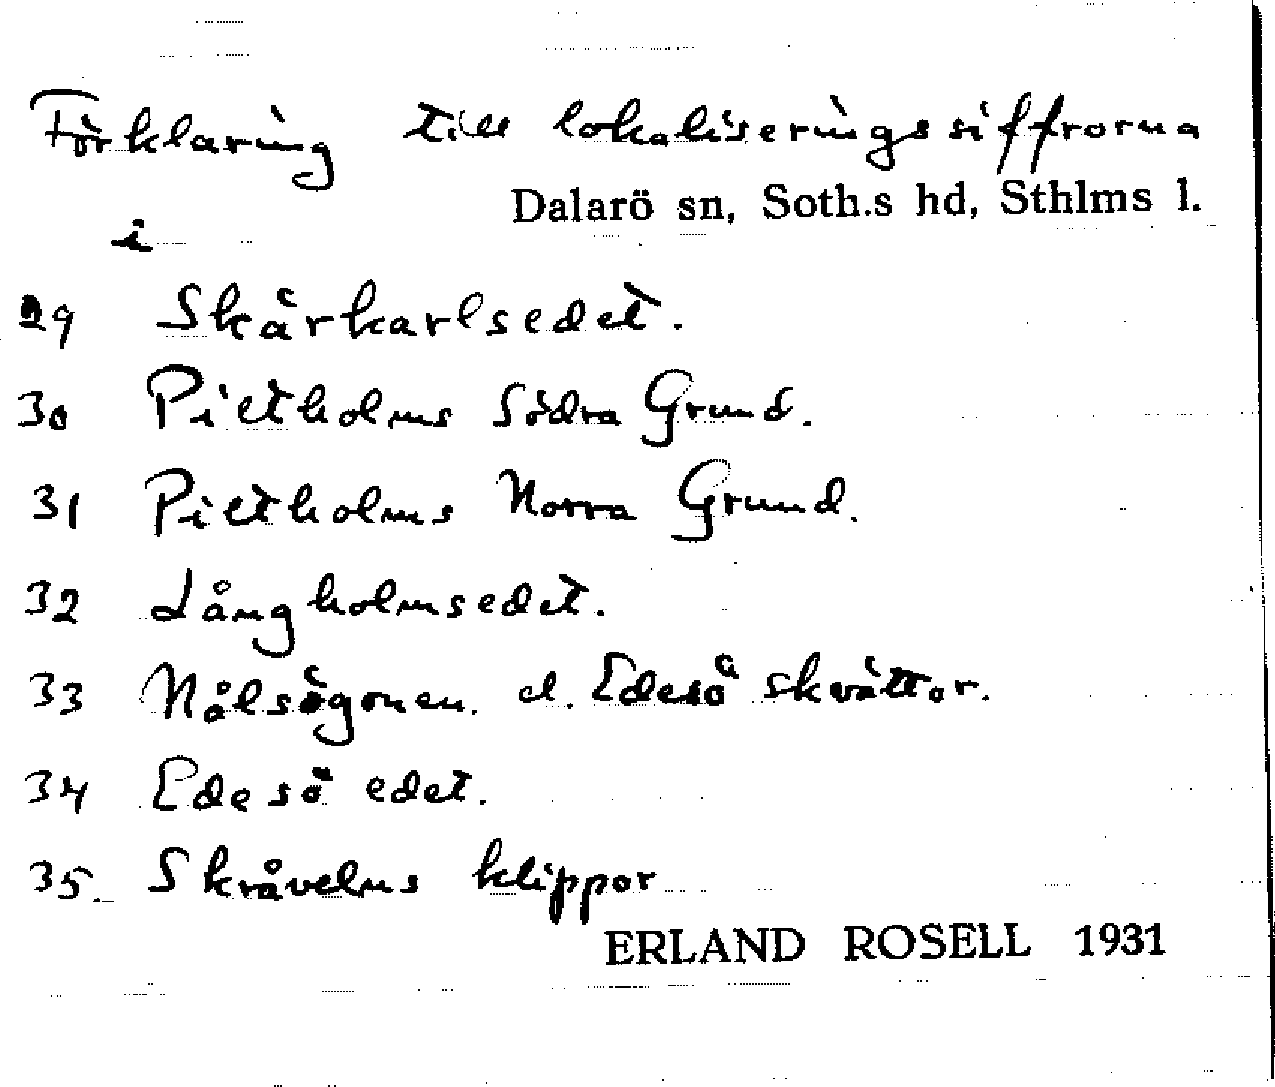 Förklaring till lokaliseringssiffrorna
i Dalarö sn, Soth.s hd, Sthlms l.
29 Skärkarlsedet.
30 Pietholms Södra Grund.
31 Pietholms Norra Grund.
32 Långholmsedet.
33 Nålsögonen. el. Edesö skvättor.
34 Edesö edet.
35. Skråvelns klippor
ERLAND ROSELL 1931